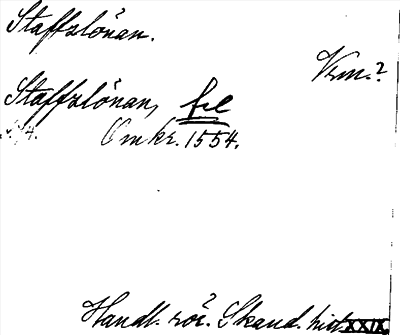 Staffslönan.
Vrm.?
Staffslönan, fil
Omkr. 1554.
Handl. rör. Skand. hist. XXIX